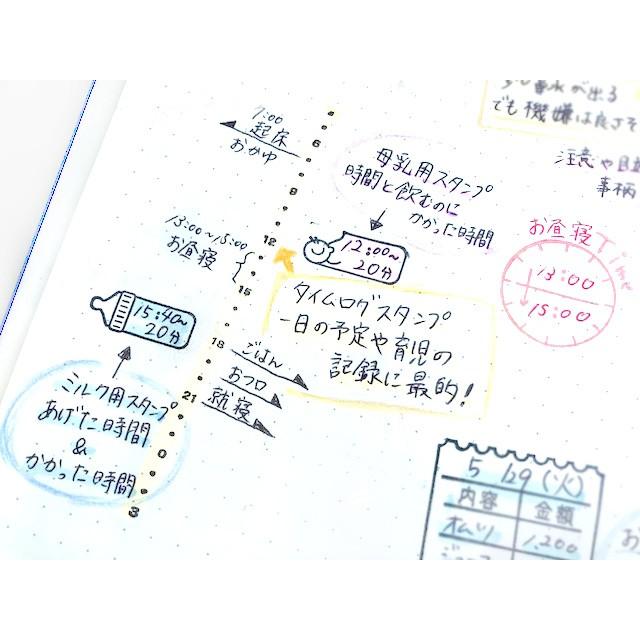 でも機嫌は良さそ
注意や目
事柄
7:00
起床
おかゆ
6
9
12
15
18
21
0
3
母乳用スタンプ
時間と飲むのに
かかった時間
13:00~15:00
お昼寝
12:00~
20分
お昼寝Time
13:00
15:00
タイムログスタンプ
一日の予定や育児の
記録に最的!
15:40~
20分
ごはん
おフロ
就寝
ミルク用スタンプ
あげた時間
&
かかった時間
5/29(火)
内容 金額
オムツ 1,200
お